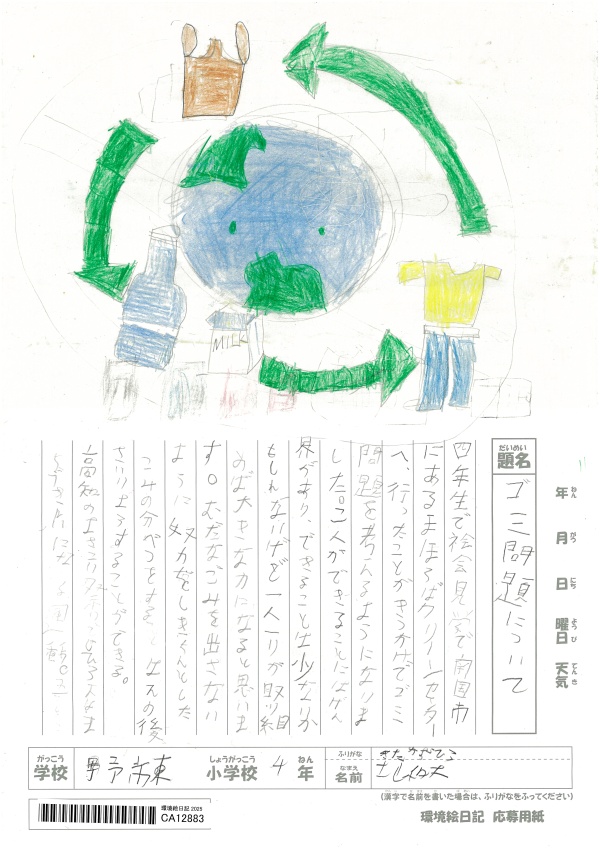 MILK
だいめい
題名
ゴミ問題について
年 ねん
月 がつ
日 にち
曜日 ようび
天気 てんき
四年生で社会見学で南国市
にあるまほろばクリーンセンター
へ、行ったことがきっかけでゴミ
問題を考えるようになりま
した。一人ができることにはげん
界があり、できることは少ないか
もしれないけど一人一人が取り組
めば大きな力になると思いま
す。むだなごみを出さない
ように努力をしきちんとした
ごみの分べつをする
さいりようすることができる。
高知の
がっこう
学校
野市東
しょうがっこう
小学校
4
ねん
年
ふりがな
なまえ
名前
(漢字で名前を書いた場合は、ふりがなをふってください)
環境絵日記 2025
CA12883
環境絵日記 応募用紙